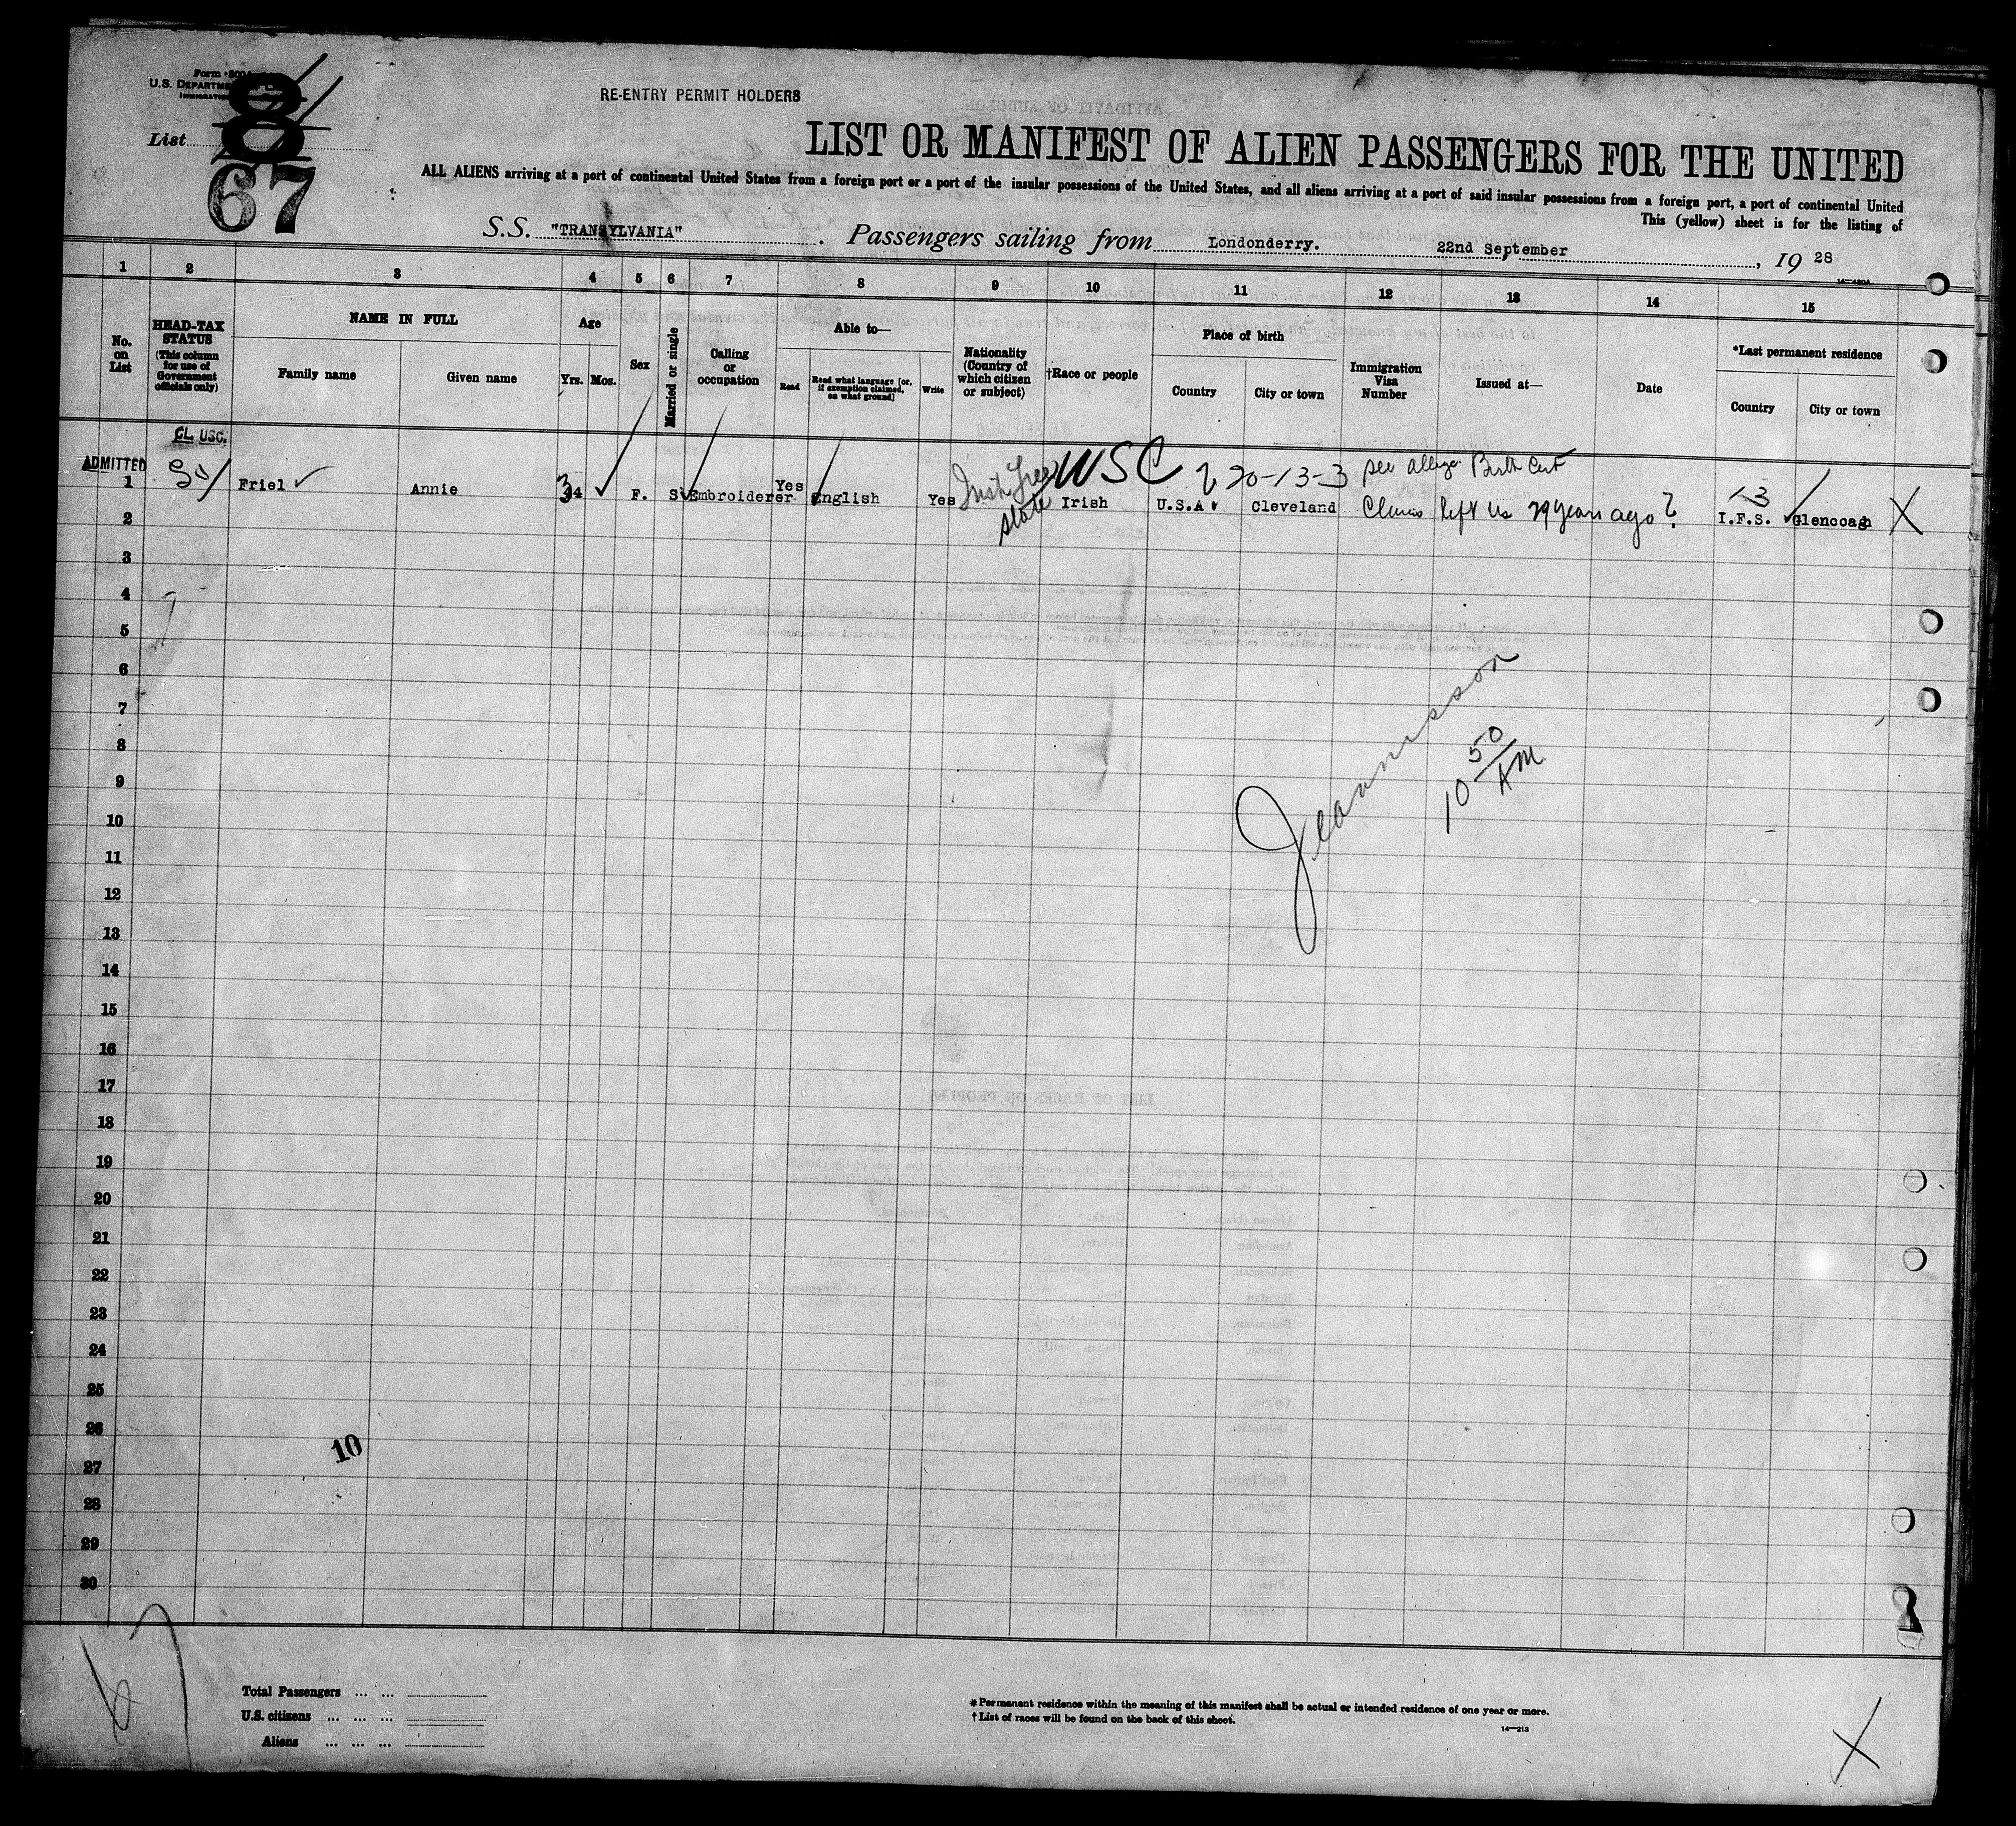 Form 500
U.S. DEPARTME
IMMIGRATION
List
8
8
67
RE-ENTRY PERMIT HOLDERS
LIST OR MANIFEST OF ALIEN PASSENGERS FOR THE UNITED
ALL ALIENS arriving at a port of continental United States from a foreign port or a port of the insular possessions of the United States, and all aliens arriving at a port of said insular possessions from a foreign port, a port of continental United
This (yellow) sheet is for the listing of
S.S. "TRANSYLVANIA". Passengers sailing from Londonderry. 22nd September, 19 28
1 2 3 4 5 6 7 8 9 10 11 12 13 14 15
No. on List
HEAD-TAX STATUS (This column for use of Government officials only)
NAME IN FULL
Family name
Given name
Age
Yrs. Mos.
Sex
Married or single
Calling or occupation
Able to—
Read
Read what language [or, if exemption claimed, on what ground]
Write
Nationality (Country of which citizen or subject)
†Race or people
Place of birth
Country
City or town
Immigration Visa Number
Issued at—
Date
*Last permanent residence
Country
City or town
CL USC.
ADMITTED
1 Friel Annie 34 F. S Embroiderer Yes English Yes Irish Free State USC Irish U.S.A. Cleveland 20-13-3 per allege Birth Cert
Claims left US 29 years ago? 13 I.F.S. Glencoagh X
2
3
4
5
6
7
8
9
10
11
12
13
14
15
16
17
18
19
20
21
22
23
24
25
26
27
28
29
30
10 50 AM
10
67
Total Passengers ... ...
U.S. citizens ... ... ...
Aliens ... ... ...
* Permanent residence within the meaning of this manifest shall be actual or intended residence of one year or more.
† List of races will be found on the back of this sheet.
14—213
X